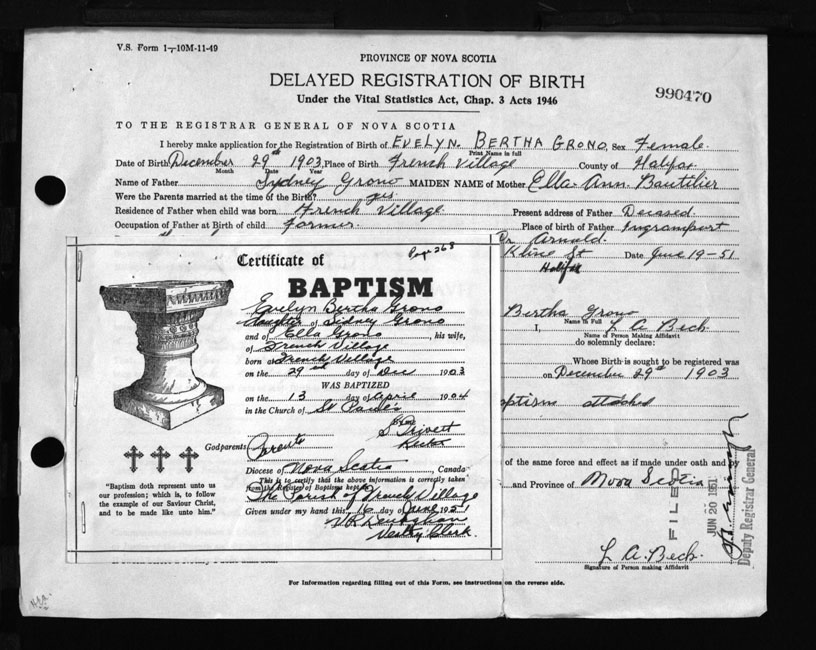 V.S. Form 1-10M-11-49
PROVINCE OF NOVA SCOTIA
DELAYED REGISTRATION OF BIRTH
Under the Vital Statistics Act, Chap. 3 Acts 1946
990470
TO THE REGISTRAR GENERAL OF NOVA SCOTIA
I hereby make application for the Registration of Birth of EVELYN. BERTHA GRONO, Sex Female.
Print Name in full
Date of Birth December 29th 1903, Place of Birth French Village County of Halifax
Month Date Year
Name of Father Sydney Grono MAIDEN NAME of Mother Ella Ann. Boutilier
Were the Parents married at the time of the Birth? yes.
Residence of Father when child was born French Village Present address of Father Decased.
Occupation of Father at Birth of child Farmer. Place of birth of Father Ingramport
Arnold.
Kline St Date June 19-51
Halifax
Bertha Grono
Name in Full
I, L A Beck
Name of Person Making Affidavit
do solemnly declare:
Whose Birth is sought to be registered was
on December 29th 1903
ptism attached
of the same force and effect as if made under oath and by
and Province of Nova Scotia
FILED
JUN 20 1951
Deputy Registrar General
L A. Beck.
Signature of Person making Affidavit
Page 268
Certificate of
BAPTISM
Evelyn Bertha Grono
daughter of Sidney Grono
and of Ella Grono, his wife,
of French Village
born at French Village
on the 29 day of Dec 1903
WAS BAPTIZED
on the 13 day of April 1904
in the Church of St Paul's
Godparents Parents
Diocese of Nova Scotia, Canada
This is to certify that the above information is correctly taken
from the Register of Baptisms kept
The Parish of French Village
Given under my hand this 16 day of June 1951
Vestry Clerk.
"Baptism doth represent unto us
our profession; which is, to follow
the example of our Saviour Christ,
and to be made like unto him."
For Information regarding filling out of this Form, see instructions on the reverse side.